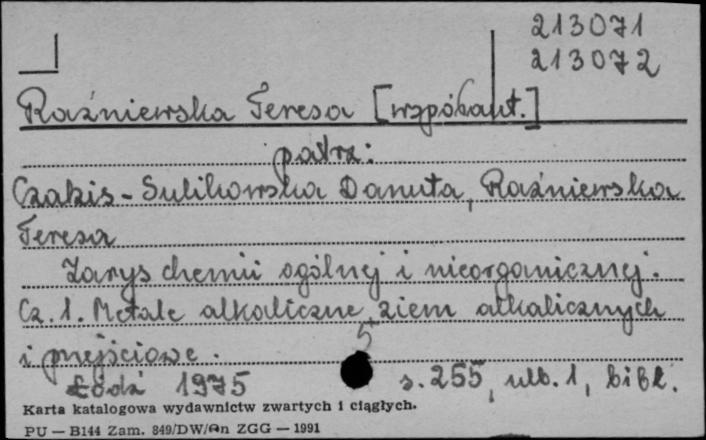 213071
213072
Raźniewska Teresa [współaut.]
patrz:
Czakis-Sulikowska Danuta, Raźniewska
Teresa
Zarys chemii ogólnej i nieorganicznej.
Cz. 1. Metale alkaliczne, ziem alkalicznych
i przejściowe.
5
Łódź 1975 s. 255, nlb. 1, bibl.
Karta katalogowa wydawnictw zwartych i ciągłych.
PU — B144 Zam. 849/DW/An ZGG — 1991